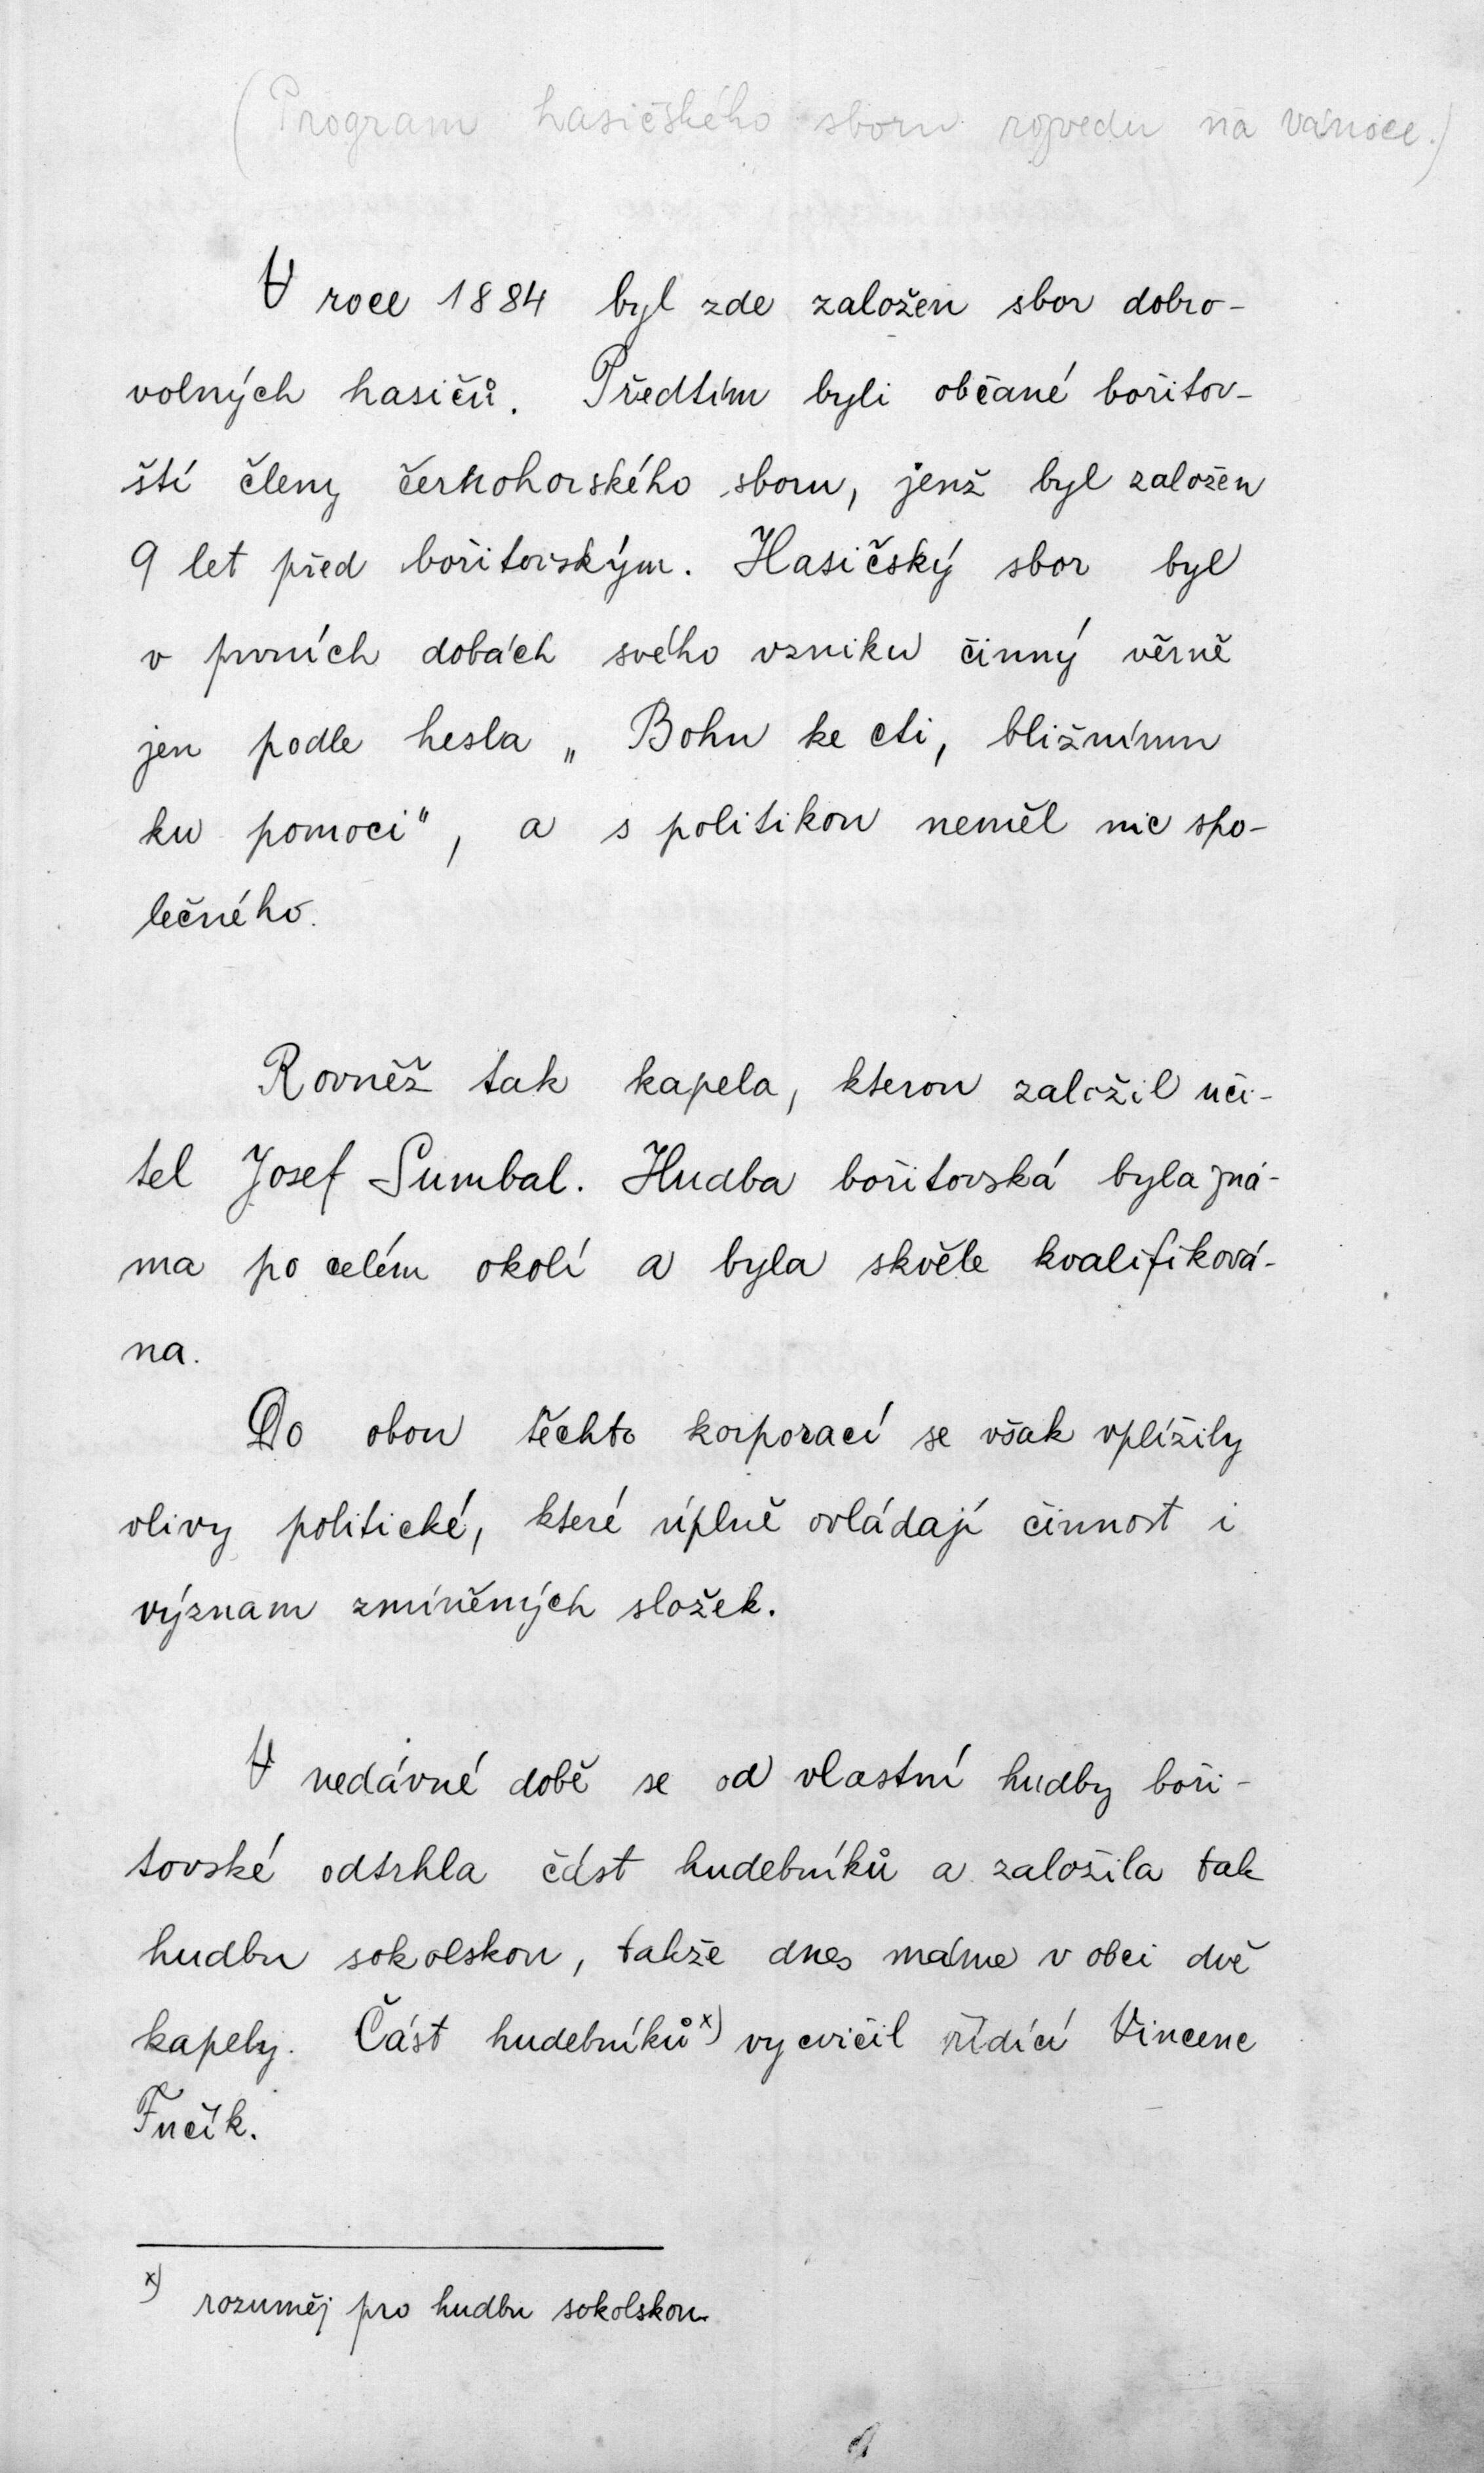 (Program hasičského sboru rozvedu na vánoce.)
V roce 1884 byl zde založen sbor dobro-
volných hasičů. Předtím byli občané bořitov-
ští členy černohorského sboru, jenž byl založen
9 let před bořitovským. Hasičský sbor byl
v prvních dobách svého vzniku činný věrně
jen podle hesla „Bohu ke cti, bližnímu
ku pomoci", a s politikou neměl nic spo-
lečného.
Rovněž tak kapela, kterou založil uči-
tel Josef Sumbal. Hudba bořitovská byla zná-
ma po celém okolí a byla skvěle kvalifiková-
na.
Do obou těchto korporací se však vplížily
vlivy politické, které úplně ovládají činnost i
význam zmíněných složek.
V nedávné době se od vlastní hudby boři-
tovské odtrhla část hudebníků a založila tak
hudbu sokolskou, takže dnes máme v obci dvě
kapely. Část hudebníků x) vycvičil řídící Vincenc
Fučík.
x) rozuměj pro hudbu sokolskou